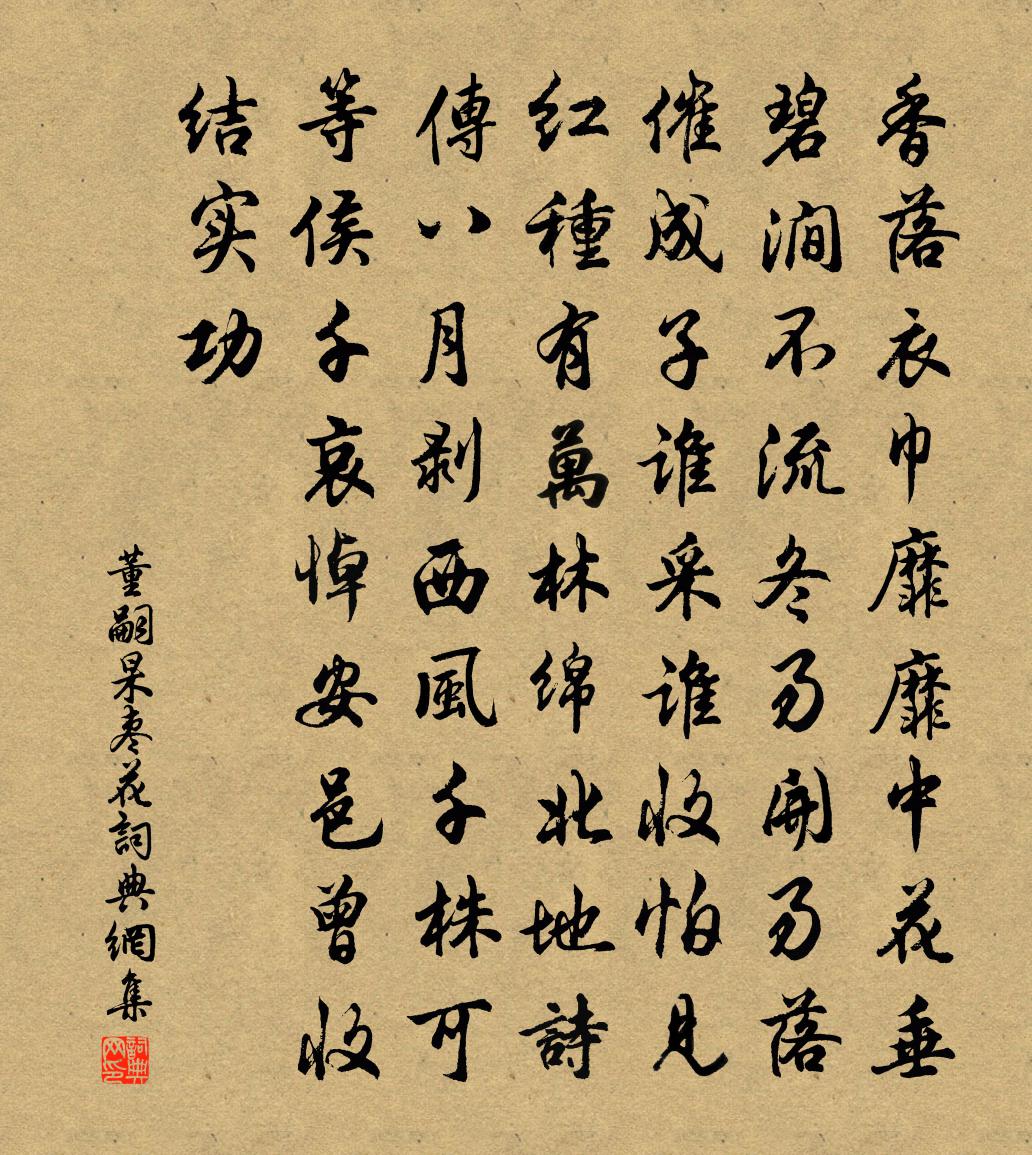 香落衣巾靡靡中花垂
碧澗不流冬易開易落
催成子谁采谁收怕見
红種有萬林绵北地詩
傳八月剥西風千株可
等侯千哀悼安邑曾收
结实功
董嗣杲枣花詞典網集
詞典网印